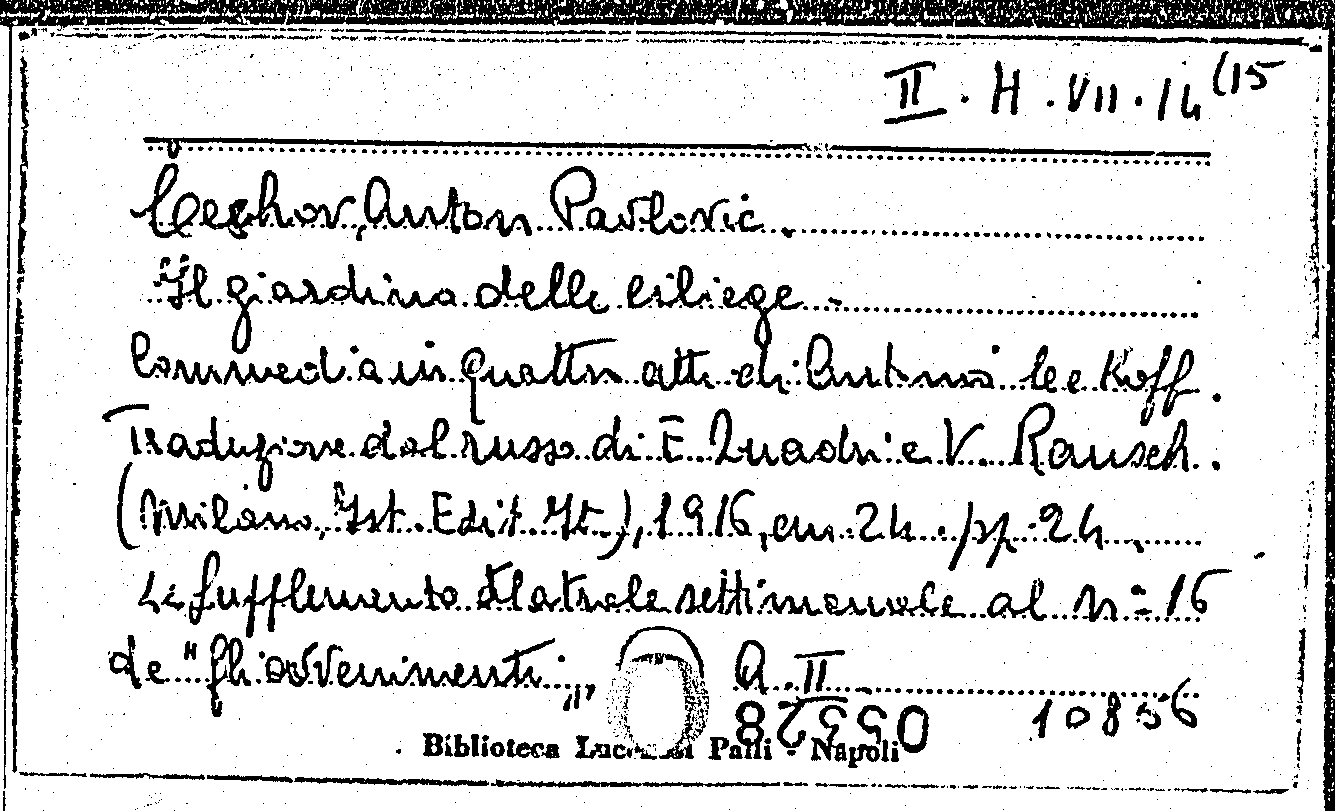 II. H. VII. 14 (15
Čechov, Anton Pavlovic.
Il giardino delle ciliege -
Commedia in quattro atti di Antonio Cec Koff.
Traduzione dal russo di E. Quadri e V. Rausch.
(Milano, Ist. Edit. It.), 1916, cm. 24. pp. 24.
Supplemento teatrale settimanale al n = 16
de "Gli avvenimenti„ A. II
05528 10856
Biblioteca Palli - Napoli